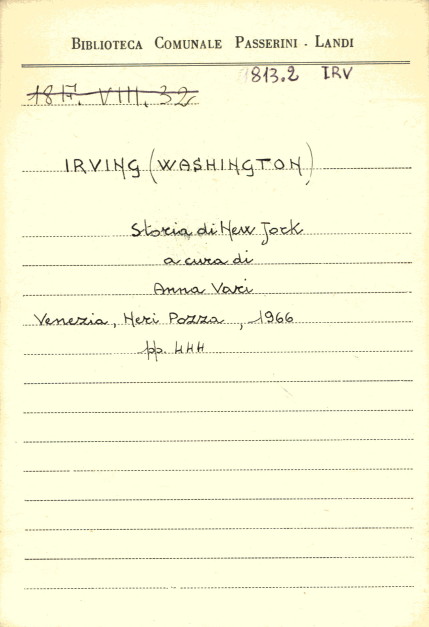 BIBLIOTECA COMUNALE PASSERINI - LANDI
813.2 IRV
18 F. VIII. 32
IRVING (WASHINGTON)
Storia di New Jork
a cura di
Anna Vari
Venezia, Neri Pozza, 1966
pp. 444